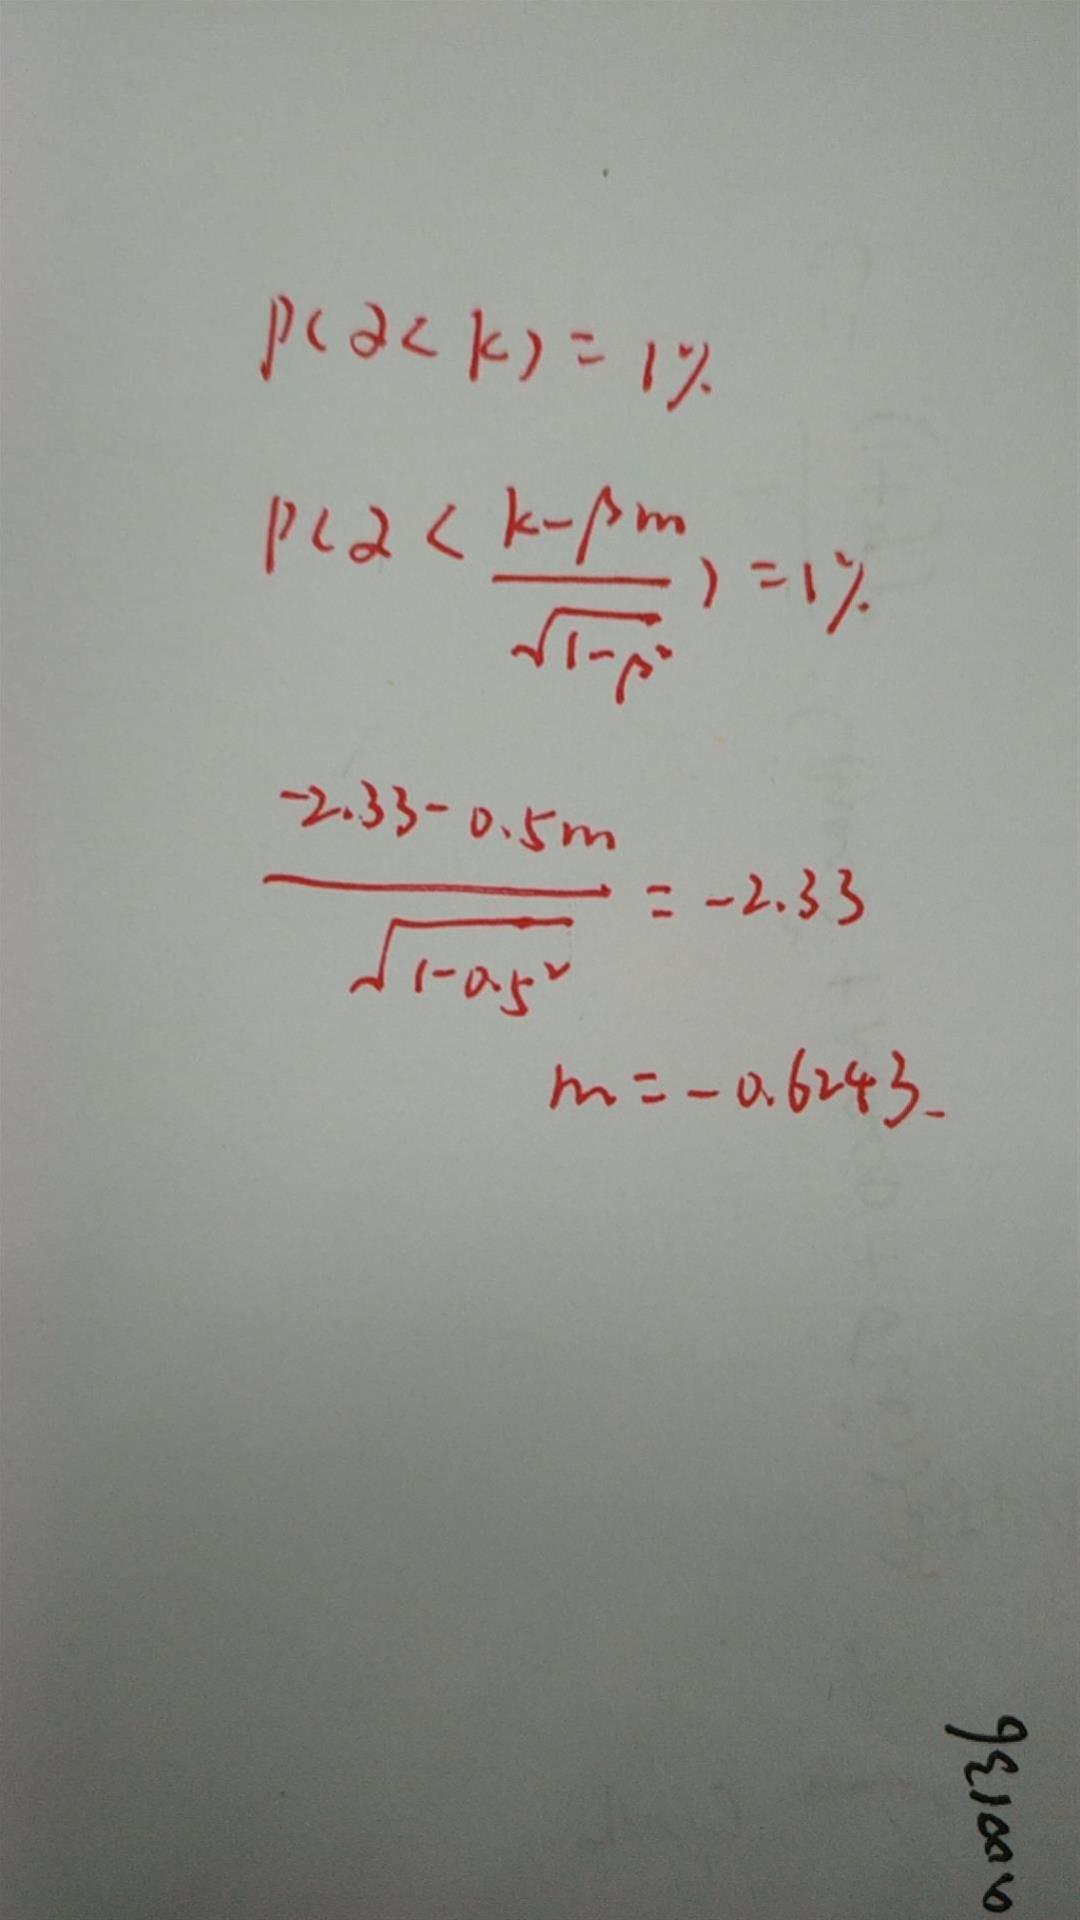 P(α < k) = 1%
P(α < (k-βm)/√(1-β²)) = 1%
(-2.33-0.5m)/√(1-0.5²) = -2.33
m = -0.6243